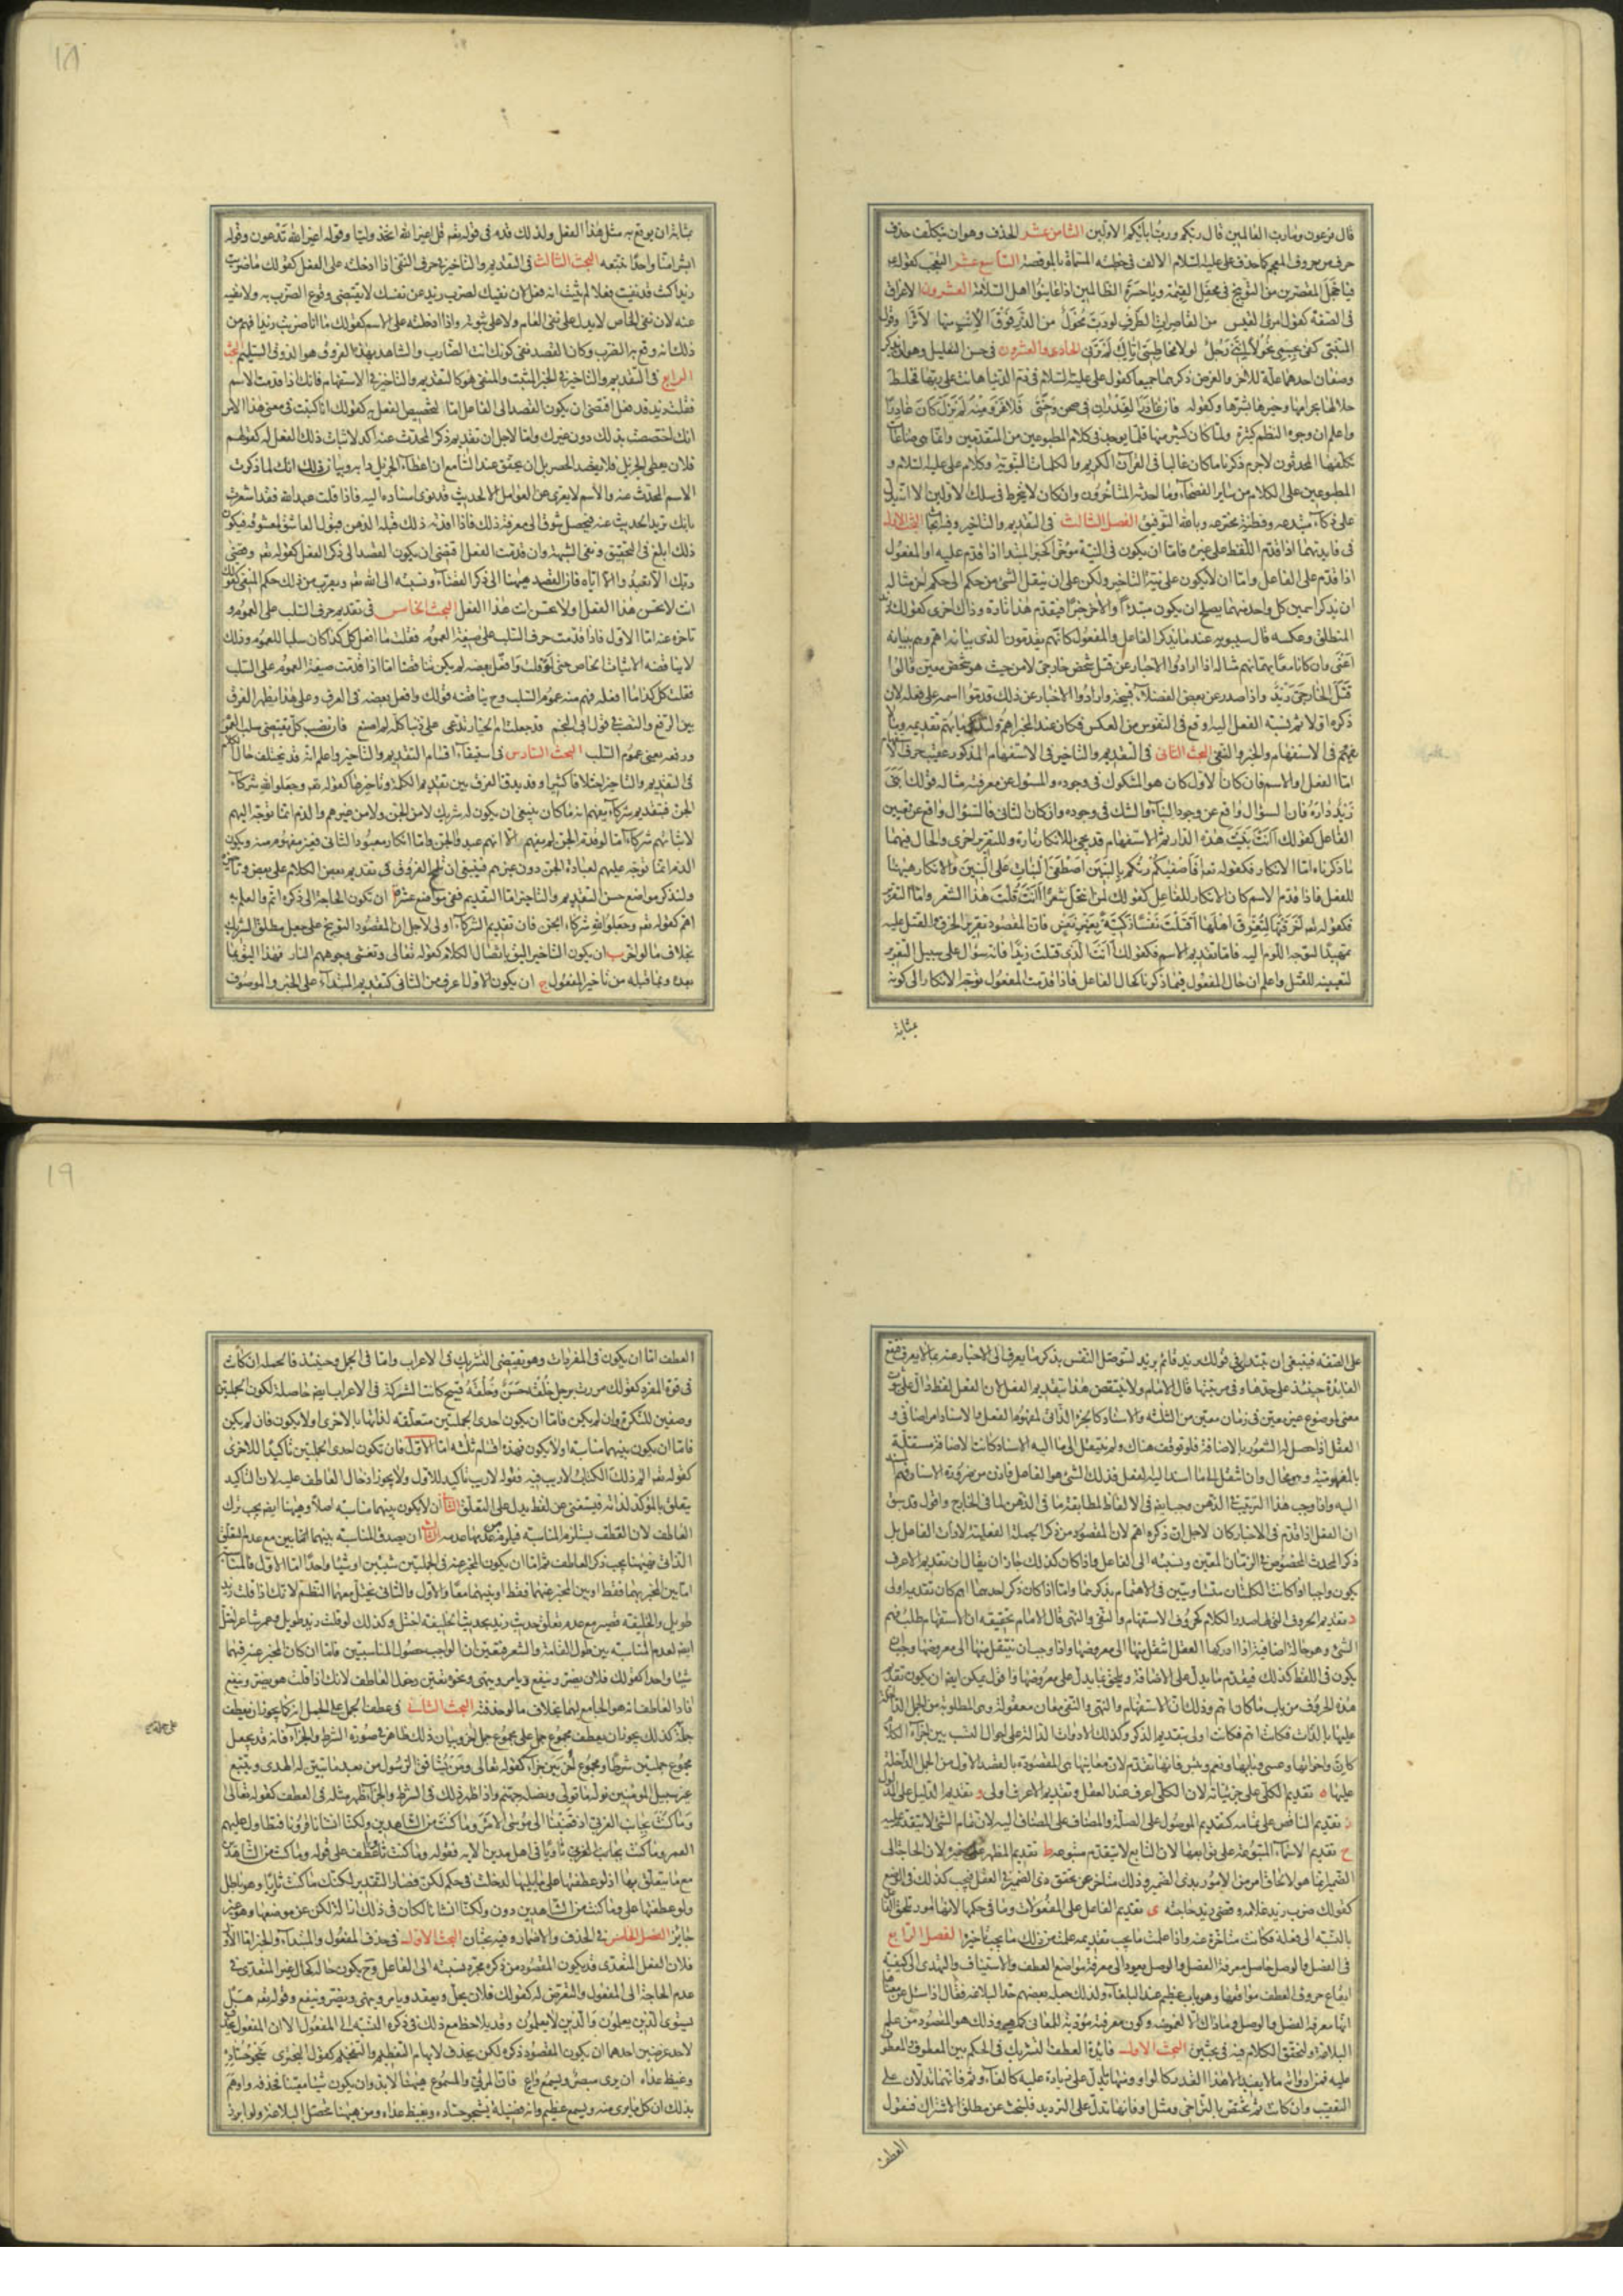 قال فرعون وما رب العالمين قال ربكم ورب ابائكم الاولين الثامن عشر الحذف وهو ان يتكلف حذف
حرف من حروف المعجم كما حذف علي عليه السلام الالف في خطبته المسماة بالموقصة التاسع عشر التعجب كقوله
فيا خجل المقصرين من التوبيخ في محفل القيمة ويا حسرة الظالمين اذا عاينوا اهل السلامة العشرون الاغراق
في الصفة كقول امرئ القيس من القاصرات الطرف لو دب محول من الذر فوق الاتب منها لاثرا وقول
المتنبي كفى بجسمي نحولا انني رجل لولا مخاطبتي اياك لم ترني الحادي والعشرون في حسن التعليل وهو ان يذكر
وصفان احدهما علة للاخر والغرض ذكرهما جميعا كقول علي عليه السلام في ذم الدنيا هانت على ربها فخلط
حلالها بحرامها وخيرها بشرها وكقوله فان غادر الغدران في صحن وجنتي فلا غرو منه لم يزل كان غادرا
واعلم ان وجوه النظم كثيرة ولما كان كثير منها قلما يوجد في كلام المطبوعين من المتقدمين وانما هي صناعات
تكلفها المحدثون لاجرم ذكرنا ما كان غالبا في القرآن الكريم والكلمات النبوية وكلام علي عليه السلام و
المطبوعين على الكلام من ساير الفصحاء وما احدثه المتأخرون وان كان لا ينخرط في سلك الاولين الا انه يدل
على ذكاء مبتدعه وفطنة مخترعه وبالله التوفيق الفصل الثالث في التقديم والتاخير وفيه ابحاث البحث الاول
في فايدتهما اذا قدم اللفظ على غيره فاما ان يكون في النية مؤخرا كخبر المبتدا اذا قدم عليه او المفعول
اذا قدم على الفاعل واما ان لا يكون على نية التاخير ولكن على ان ينقل الشئ من حكم الى حكم اخر مثاله
ان يذكر اسمين كل واحد منهما يصلح ان يكون مبتداً والاخر خبرا فيقدم هذا تارة وذاك اخرى كقولك زيد
المنطلق وعكسه قال سيبويه عندما يذكر الفاعل والمفعول كانهم يقدمون الذي بيانه اهم وهم ببيانه
اعنى وان كانا معا يهمانهم مثاله اذا ارادوا الاخبار عن قتل شخص خارجي لا من حيث هو شخص معين قالوا
قتل الخارجي زيد واذا صدر عن بعض الفضلاء قبيحة وارادوا الاخبار عن ذلك قدموا اسمه على فعله لان
ذكره اولا ثم نسبة الفعل اليه اوقع في النفوس من العكس فكان عند المخبر اهم ولنذكر ما يهم تقديمه وبيانه
في الاستفهام والخبر والنفي البحث الثاني في التقديم والتاخير في الاستفهام المذكور عقيب حرف الاستفهام
اما الفعل او الاسم فان كان الاول كان هو المشكوك في وجوده والمسئول عن معرفته مثاله قولك أبنى
زيد داره فان السؤال واقع عن وجود البناء والشك في وجوده وان كان الثاني فالسؤال واقع عن تعيين
الفاعل كقولك أانت بنيت هذه الدار ثم الاستفهام قد يجئ للانكار تارة وللتقرير اخرى والحال فيهما
ما ذكرناه اما الانكار فكقوله تعم أفأصفيكم ربكم بالبنين أصطفى البنات على البنين والانكار هيهنا
للفعل فاذا قدم الاسم كان الانكار للفاعل كقولك لمن انتحل شعرا أانت قلت هذا الشعر واما التقرير
فكقوله تعم أخرقتها لتغرق اهلها أقتلت نفسا زكية بغير نفس فان المقصود تقرير الخرق والقتل عليه
تمهيدا لتوجه اللوم اليه فاما تقديم الاسم فكقولك أانت الذي قتلت زيدا فانه سؤال على سبيل التقرير
لتعيينه للقتل واعلم ان حال المفعول فيما ذكرنا كحال الفاعل فاذا قدمت المفعول توجه الانكار الى كونه
بمثابة
١٨
بمثابة ان يوقع به مثل هذا الفعل ولذلك قدم في قوله تعم قل اغير الله اتخذ وليا وقوله اغير الله تدعون وقوله
ابشرا منا واحدا نتبعه البحث الثالث في التقديم والتاخير في حرف النفي اذا ادخلته على الفعل كقولك ما ضربت
زيدا كنت قد نفيت فعلا لم يثبت انه فعل لان نفيك لضرب زيد عن نفسك لا يقتضي وقوع الضرب به ولا نفيه
عنه لان نفي الخاص لا يدل على نفي العام ولا على ثبوته واذا ادخلته على الاسم كقولك ما انا ضربت زيدا فهم من
ذلك انه وقع به الضرب وكان القصد نفي كونك انت الضارب والشاهد بهذا الفروق هو الذوق السليم البحث
الرابع في التقديم والتاخير في الخبر المثبت والمنفي هو كالتقديم والتاخير في الاستفهام فانك اذا قدمت الاسم
فقلت زيد قد فعل اقتضى ان يكون القصد الى الفاعل اما لتخصيص الفعل به كقولك انا كتبت في معنى هذا الامر
انك اختصصت بذلك دون غيرك واما لاجل ان تقديم ذكر المحدث عنه آكد لاثبات ذلك الفعل له كقولهم
فلان يعطي الجزيل فلا يقصد الحصر بل ان يحقق عند السامع ان اعطاء الجزيل دابه وبيان ذلك انك لما ذكرت
الاسم المحدث عنه والاسم لا يعرى عن العوامل الا لحديث قد نوى اسناده اليه فاذا قلت عبد الله فقد اشعرت
بانك تريد الحديث عنه فيحصل شوق الى معرفة ذلك فاذا افدته ذلك قبله الذهن قبول العاشق لمعشوقه فيكون
ذلك ابلغ في التحقيق ونفي الشبهة وان قدمت الفعل اقتضى ان يكون القصد الى ذكر الفعل كقوله تعم وقضى
ربك الا تعبدوا الا اياه فان القصد هيهنا الى ذكر القضاء ونسبته الى الله تعم ويقرب من ذلك حكم المنفي كقولك
انت لا تحسن هذا الفعل ولا تحسن انت هذا الفعل البحث الخامس في تقديم حرف السلب على العموم و
تاخره عنه اما الاول فاذا قدمت حرف السلب على صيغة العموم فقلت ما افعل كل كذا كان سلبا للعموم وذلك
لا يناقضه الاثبات الخاص حتى لو قلت وافعل بعضه لم يكن مناقضا اما اذا قدمت صيغة العموم على السلب
فقلت كل كذا ما افعله فهم منه عموم السلب وح يناقضه قولك وافعل بعضه في العرف وعلى هذا يظهر الفرق
بين الرفع والنصب في قول ابي النجم قد جعلت ام الخيار تدعي علي ذنبا كله لم اصنع فان نصب كل يقتضي سلب العموم
ورفعه يعني عموم السلب البحث السادس في استيفاء اقسام التقديم والتاخير واعلم انه قد يختلف حال الكلام
في التقديم والتاخير اختلافا كثيرا وقد يدق الفرق بين تقديم الكلمة وتاخيرها كقوله تعم وجعلوا لله شركاء
الجن فبتقديم شركاء يفهم انه ما كان ينبغي ان يكون له شريك لا من الجن ولا من غيرهم والذم انما توجه اليهم
لاثباتهم شركاء اما لو قدم الجن لم يفهم الا انهم عبدوا الجن واما انكار معبود الثاني فغير مفهوم منه ويكون
الذم انما توجه عليهم لعبادة الجن دون غيرهم فينبغي ان تلمح الفروق في تقديم بعض الكلام على بعض وتاخيره
ولنذكر مواضع حسن التقديم والتاخير اما التقديم ففي مواضع عشر ا ان تكون الحاجة الى ذكره اتم والعلم به
اهم كقوله تعم وجعلوا لله شركاء الجن فان تقديم الشركاء اولى لاجل ان المقصود التوبيخ على جعل مطلق الشريك
بخلاف ما لو اخر ب ان يكون التاخير اليق باتصال الكلام كقوله تعالى وتغشى وجوههم النار فهذا اليق بما
بعده وبما قبله من تاخير المفعول ج ان يكون الاول اعرف من الثاني كتقديم المبتداء على الخبر والموصوف
على الصفة فينبغي ان تبتدئ في قولك زيد قائم بزيد لتوصل النفس بذكر ما يعرف الى الاخبار عنه بما لا يعرف فتقع
الفايدة حينئذ على حدها وفي مرتبتها قال الامام ولا ينتقض هذا بتقديم الفعل لان الفعل لفظ دال على ثبوت
معنى لموضوع غير معين في زمان معين من الثلثة والاسناد كالجزء الذاتي لمفهوم الفعل والاسناد امر اضافي و
العقل اذا حصل له الشعور بالاضافة فلو توقفت هناك ولم ينتقل الى ما اليه الاسناد كانت الاضافة مستقلة
بالمفهومية وهو محال وان انتقل الى ما اسند اليه الفعل فذلك الشئ هو الفاعل فاذن من ضرورة الاسناد فهم
اليه واذا وجب هذا الترتيب في الذهن وجب ايضا في الالفاظ المطابقة لما في الذهن لما في الخارج واقول قد سبق
ان الفعل اذا قدم في الاخبار كان لاجل ان ذكره اهم لان المقصود من ذكر الجملة الفعلية لا ذات الفاعل بل
ذكر المحدث المخصوص في الزمان المعين ونسبته الى الفاعل واذا كان كذلك جاز ان يقال ان تقديم الاعرف
يكون واجبا اذا كانت الكلمتان متساويتين في الاهتمام بذكرهما واما اذا كان ذكر احدهما اهم كان تقديمه اولى
د تقديم الحروف التي لها صدر الكلام كحروف الاستفهام والنفي والنهي قال الامام تحقيقه ان الاستفهام طلب فهم
الشئ وهو حالة اضافية اذا ادركها العقل انتقل منها الى معروضها واذا وجب ان ينتقل منها الى معروضها وجب ان
يكون في اللفظ كذلك فيقدم ما يدل على الاضافة ويلحق بما يدل على معروضها واقول يمكن ايضا ان يكون تقديم
هذه الحروف من باب ما كان اهم وذلك ان الاستفهام والنهي والنفي معان معقولة وهي المطلوبة من الجمل الداخلة
عليها بالذات فكانت اهم فكانت اولى بتقديم الذكر وكذلك الادوات الدالة على احوال النسب بين اجزاء الكلام
كان واخواتها وعسى وبابها ونعم وبئس فانها تتقدم لان معانيها هي المقصودة بالقصد الاول من الجمل الداخلة
عليها ه تقديم الكلي على جزئياته لان الكلي اعرف عند العقل وتقديم الاعرف اولى و تقديم الدليل على المدلول
ز تقديم الناقص على تمامه كتقديم الموصول على الصلة والمضاف على المضاف اليه لان تمام الشئ لا يتقدم عليه
ح تقديم الاسماء المتبوعة على توابعها لان التابع لا يتقدم متبوعه ط تقديم المظهر على ضميره لان الحاجة الى
الضمير انما هو لالحاق امر من الامور بذي الضمير وذلك متاخر عن تحقق ذي الضمير في العقل فيجب كذلك في الوضع
كقولك ضرب زيد غلامه وقضى زيد حاجته ي تقديم الفاعل على المفعولات وما في حكمها لانها امور تلحق الفاعل
بالنسبة الى فعله فكانت متاخرة عنه واذا علمت ما يجب تقديمه علمت من ذلك ما يجب تاخيره الفصل الرابع
في الفصل والوصل حاصل معرفة الفصل والوصل يعود الى معرفة مواضع العطف والاستيناف والتهدي الى كيفية
ايقاع حروف العطف مواقعها وهو باب عظيم عند البلغاء ولذلك جعله بعضهم حدا للبلاغة فقال اذا سئل عن معناها
انها معرفة الفصل والوصل وما ذاك الا لغموضه وكون معرفته مؤدية للمعاني كما هي وذلك هو المقصود من علم
البلاغة ولنحقق الكلام فيه في بحثين البحث الاول فائدة العطف التشريك في الحكم بين المعطوف والمعطوف
عليه فمن ادواته ما لا يفيد الا هذا القدر كالواو ومنها ما يدل على زيادة عليه كالفاء وثم فانهما تدلان على
التعقيب وان كانت ثم تختص بالتراخي ومثل او فانها تدل على الترديد فلنبحث عن مطلق الاشتراك فنقول
العطف
١٩
العطف اما ان يكون في المفردات وهو يقتضي التشريك في الاعراب واما في الجمل وحينئذ فالجملة ان كانت
في قوة المفرد كقولك مررت برجل خلقه حسن وخلقه قبيح كانت الشركة في الاعراب ايضا حاصلة لكون الجملتين
وصفين للنكرة وان لم يكن فاما ان يكون احدى الجملتين متعلقة لذاتها بالاخرى او لا يكون فان لم يكن
فاما ان يكون بينهما مناسبة او لا يكون فهذه اقسام ثلثة اما الاول فان تكون احدى الجملتين تاكيدا للاخرى
كقوله تعم الم ذلك الكتاب لا ريب فيه فقوله لا ريب تاكيد للاول ولا يجوز ادخال العاطف عليه لان التاكيد
يتعلق بالمؤكد لذاته فيستغني عن لفظ يدل على التعلق الثاني ان لا يكون بينهما مناسبة اصلا وهيهنا ايضا يجب ترك
العاطف لان العطف يستلزم المناسبة فيلزم من عدمها عدمه الثالث ان يصدق المناسبة بينهما مع عدم التعلق
الذاتي فهيهنا يجب ذكر العاطف ثم اما ان يكون المخبر عنه في الجملتين شيئين او شيئا واحدا اما الاول فالمناسبة
اما بين المخبر بهما فقط او بين المخبر عنهما فقط او بينهما معا والاول والثاني يختل معهما النظم لانك اذا قلت زيد
طويل والخليفة قصير مع عدم تعلق حديث زيد بحديث الخليفة اختل وكذلك لو قلت زيد طويل وعمرو شاعر اختل
ايضا لعدم المناسبة بين طول القامة والشعر فتعين ان الواجب حصول المناسبتين فاما ان كان المخبر عنه فيهما
شيئا واحدا كقولك فلان يضر وينفع ويامر وينهى ونحوه تعين دخول العاطف لانك اذا قلت هو يضر وينفع
افاد العاطف انه هو الجامع لهما بخلاف ما لو حذفته البحث الثاني في عطف الجمل على الجمل انه كما يجوز ان يعطف
جملة كذلك يجوز ان يعطف مجموع جمل على مجموع جمل اخر وبيان ذلك ظاهر في صورة الشرط والجزاء فانه قد يجعل
مجموع جملتين شرطا ومجموع اخريين جزاء كقوله تعالى ومن يشاقق الرسول من بعد ما تبين له الهدى ويتبع
غير سبيل المؤمنين نوله ما تولى ونصله جهنم واذا ظهر ذلك في الشرط والجزاء ظهر مثله في العطف كقوله تعالى
وما كنت بجانب الغربي اذ قضينا الى موسى الامر وما كنت من الشاهدين ولكنا انشأنا قرونا فتطاول عليهم
العمر وما كنت ثاويا في اهل مدين الاية فقوله وما كنت ثاويا عطف على قوله وما كنت من الشاهدين
مع ما يتعلق بها اذ لو عطفتها على ما يليها لدخلت في حكم لكن فصار التقدير لكنك ما كنت ثاويا وهو باطل
ولو عطفتها على وما كنت من الشاهدين دون ولكنا انشأنا لكان في ذلك ازالة لكن عن موضعها وهو غير
جايز الفصل الخامس في الحذف والاضمار وفيه بحثان البحث الاول في حذف المفعول والمبتداء والخبر اما الاول
فلان الفعل المتعدي قد يكون المقصود من ذكره مجرد نسبته الى الفاعل وح يكون حاله كحال غير المتعدي في
عدم الحاجة الى المفعول والتعرض له كقولك فلان يحل ويعقد ويامر وينهى ويضر وينفع وقوله تعم هل
يستوي الذين يعلمون والذين لا يعلمون وقد يلاحظ مع ذلك في ذكره النسبة الى المفعول الا ان المفعول يحذف
لاحد غرضين احدهما ان يكون المقصود ذكره لكن يحذف لايهام التعظيم والتفخيم كقول البحتري شجو حساده
وغيظ عداه ان يرى مبصر ويسمع واع فان المرئي والمسموع هيهنا لابد وان يكون شيئا معينا فحذفه واوهم
بذلك ان كل ما يرى منه ويسمع عظيم وانه فضيلة يشجو حساده ويغيظ عداه ومن هيهنا تحصل البلاغة ولو ابرزه